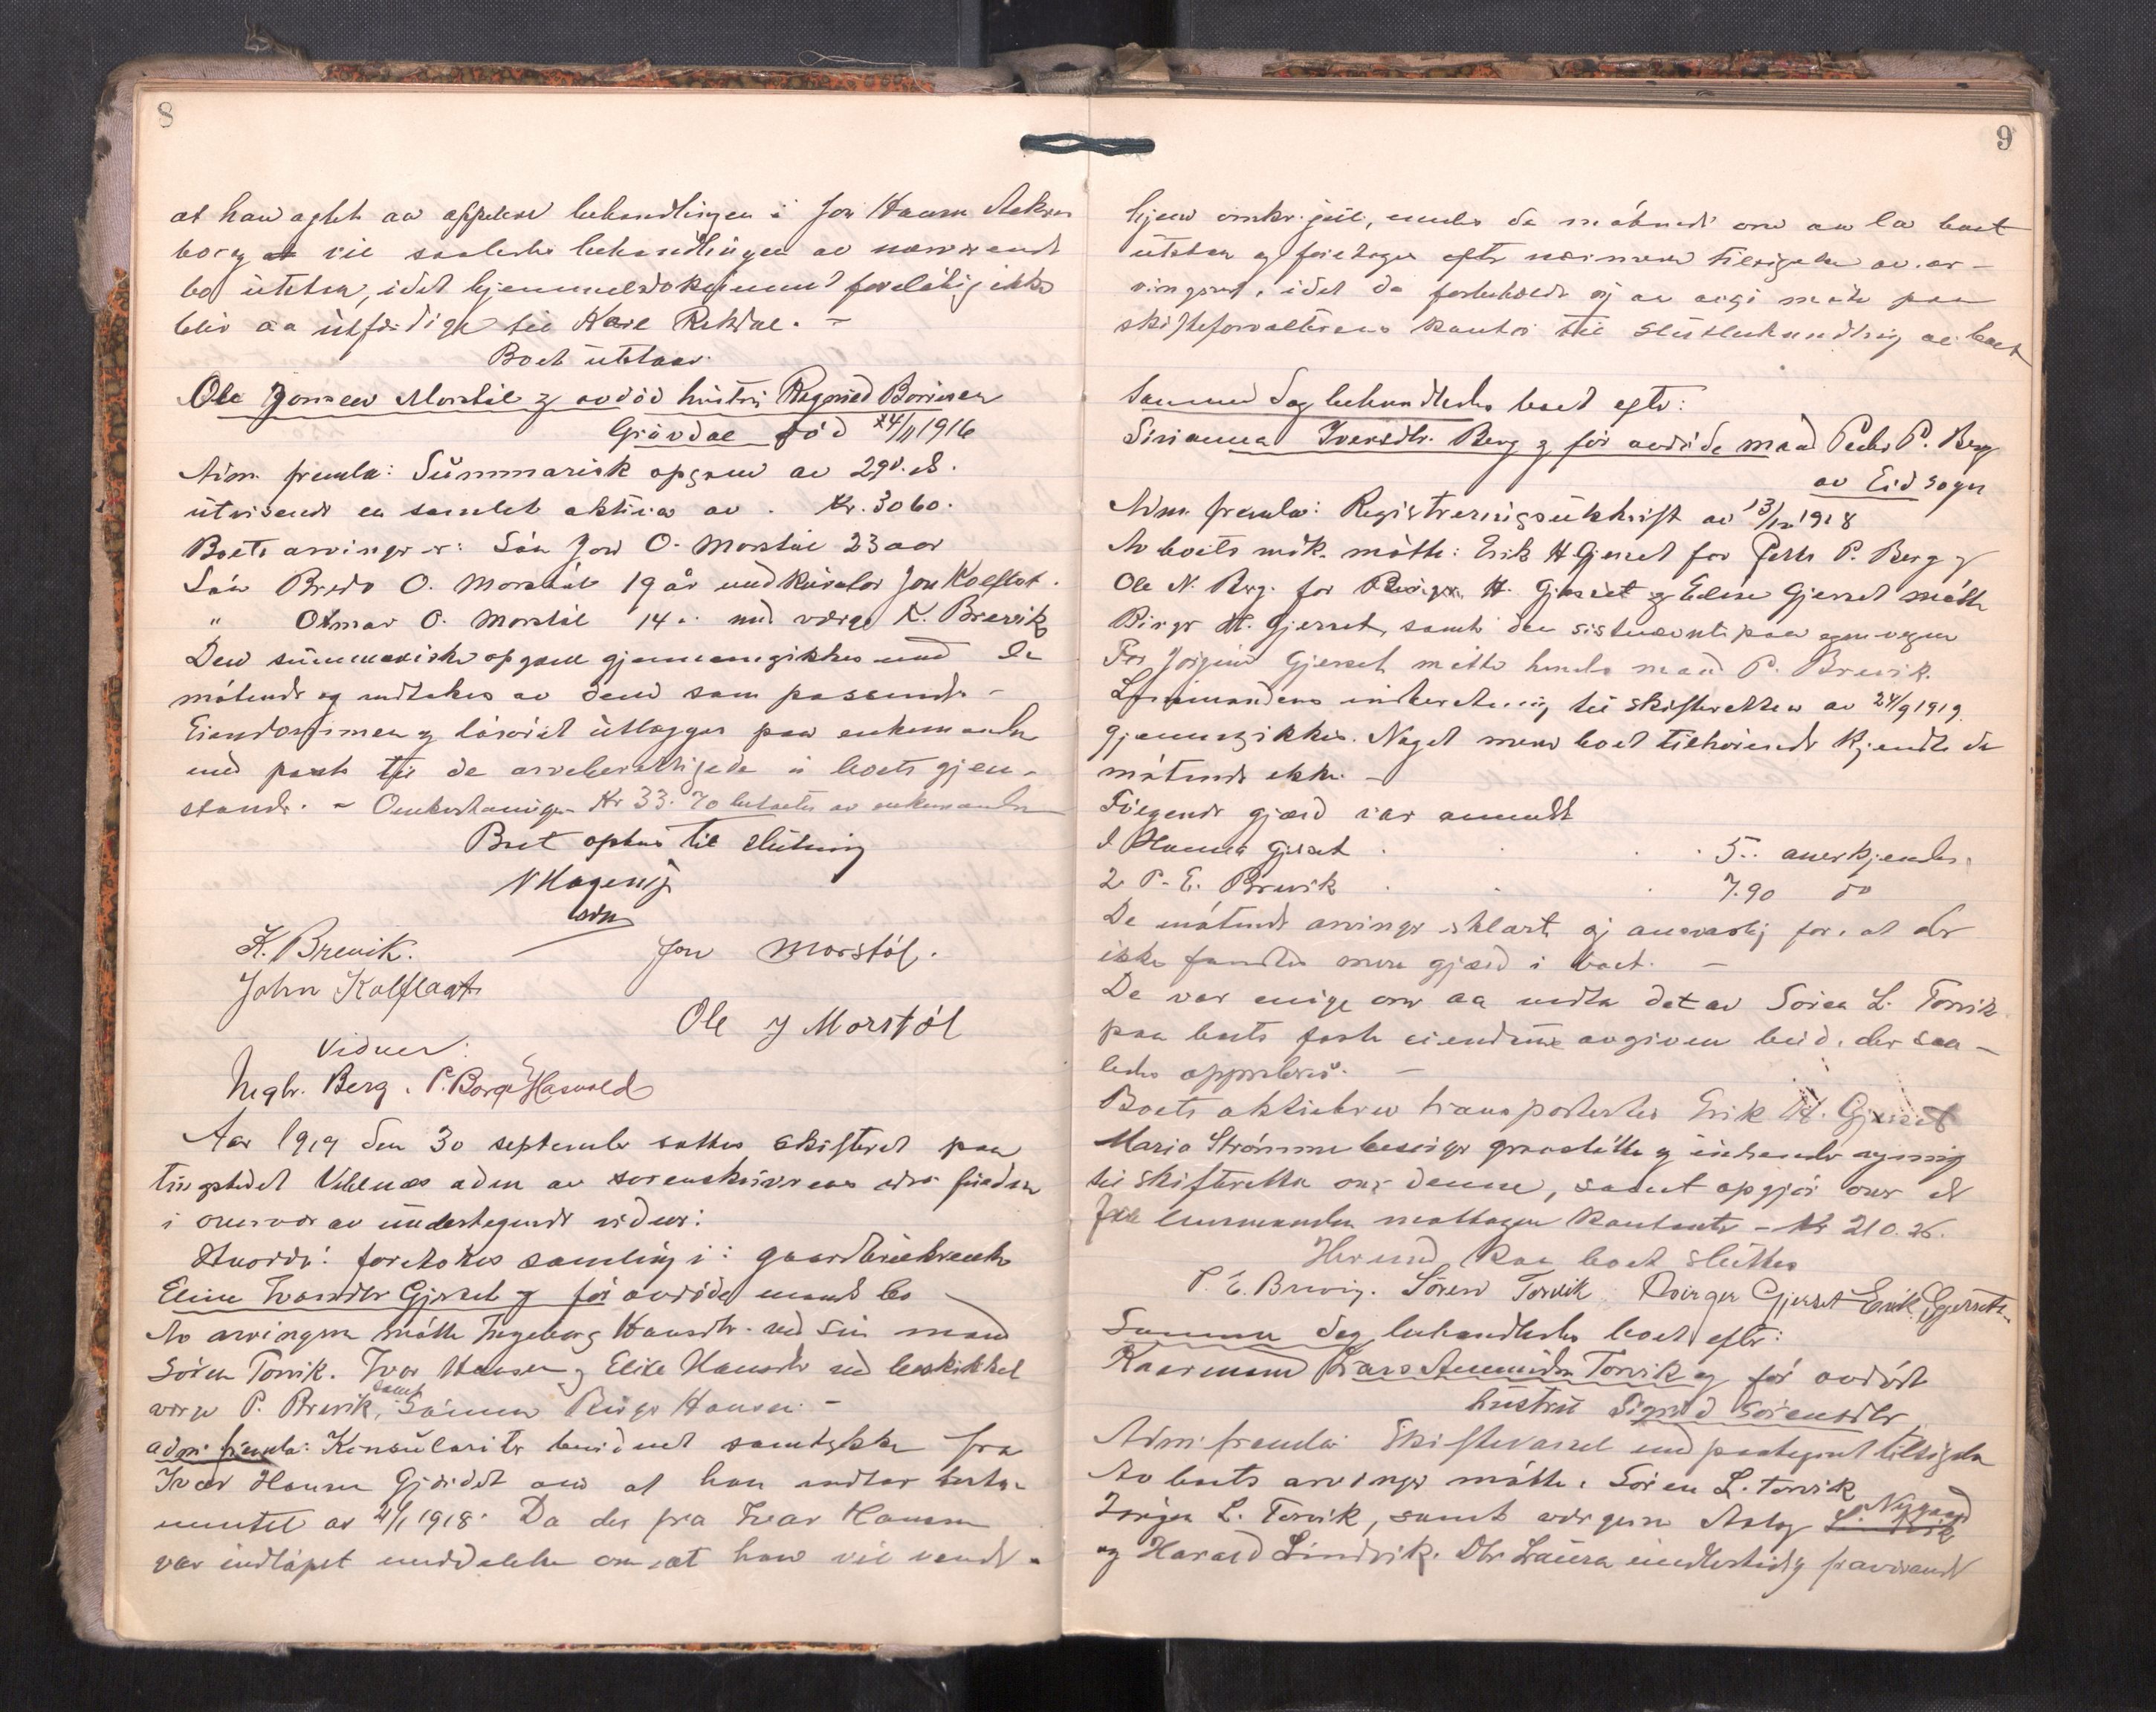 8
at han agtet aa appelere behandlingen i Jon Hansen Aakres
bo og at vil saaledes behandlingen av nærværende
bo utstaa, idet hjemmelsdokument foreløbig ikke
blir aa utfærdige til Karl Rekdal. -
Boet utstaar.
Ole Jonsen Morstøl og avdød hustru Ragnild
Grøvdal død 24/11 1916
Adm. fremla: Summarisk opgave av 29 d.
utvisende en samlet aktiva av . Kr. 3060.
Boets arvinger er: Søn Jon O. Morstøl 23 aar
Søn O. Morstøl 19 år med kurator Jon Kolflot.
" Otmar O. Morstøl 14 " med værge K. Brevik
Den summariske opgave gjennemgikkes med de
møtende og vedtokes av dem som passende -
Eiendommen og løsøret utlægges paa enkemanden
med pant til de arveberettigede i boets gjen-
stande. - Omkostninger Kr 33.70 betales av enkemanden
Boet optas til slutning
N Hagen
adm
K. Brevik. Jon Morstøl.
John Kolflaat
Ole J Morstøl
Vidner:
Ingbr. Berg. P. Borge Hasvold
Aar 1919 den 30 september sattes skifteret paa
tingstedet adm av sorenskriverens
i overvær av undertegnede vidner:
Hvorda: foretokes samling i: gaardbrukerenke
Eline Gjerset og før avdøde mands bo
Av arvingerne møtte Ingeborg Hansdtr. ved sin mand
Søren Torvik. Ivar Hansen og Elise Hansdtr ved beskikket
værge P. Brevik, samt Sønnen Birger Hansen. -
adm. fremla: bevidnet samtykke fra
Ivar Hansen Gjerset om at han vedtar testa-
mentet av 4/1 1918. Da der fra Ivar Hansen
var indløpet meddelelse om at han vil vende
9
hjem omkr. jul, enedes de møtende om aa la boet
utstaa og foretages efter nærmere tilsigelse av ar-
vingerne, idet de forbeholdt sig aa møte paa
skifteforvalterens kontor til slutbehandling av boet
Samme dag behandledes boet efter:
Sirianna Iversdtr. Berg og før avdøde mand Peder P. Berg
av Eidsogn
Adm. fremla: Registreringsutskrift av 13/12 1918
Av boets møtte: Erik H Gjerset for Peder P. Berg og
Ole N. Berg. for Birger H. Gjerset og Eline Gjerset møtte
Birger H. Gjerset, samt den sistnævnte paa egen vegne
For Gjerset møtte hendes mand P. Brevik.
Lensmandens indberetning til skifteretten av 24/9 1919.
gjennemgikkes. Noget mere boet tilhørende kjendte de
møtende ikke. -
Følgende gjæld var anmeldt
1 Hanna Gjerset . . . . 5.. anerkjendes.
2 P. E. Brevik . . . 7.90 do
De møtende arvinger erklærte sig ansvarlig for, at der
ikke fandtes mere gjæld i boet. -
De var enige om aa vedta det av Søren L. Torvik
paa boets faste eiendom avgivne bud, der saa-
ledes approberes. -
Boets aktiebrev transporteres Erik H. Gjerset
Maria Strømme besørger gravstøtte og indsender regning
til skifteretten over denne, samt opgjør over de
fra lensmanden mottagne kontante - Kr 210.26.
Hermed kan boet sluttes
P. E. Brevig. Søren Torvik Birger Gjerset Erik Gjersete
Samme dag behandledes boet efter:
Kaarmand Lars Torvik og før avdøde
hustru Sigrid Sørensdtr
Adm. fremla: Skiftevarsel med paategnet tilsigelse
Av boets arvinger møtte: Søren L. Torvik
Jørgen L. Torvik, samt værgerne Aslag Nygaard
og Harald Lindvik. Dtr Laura fraværende